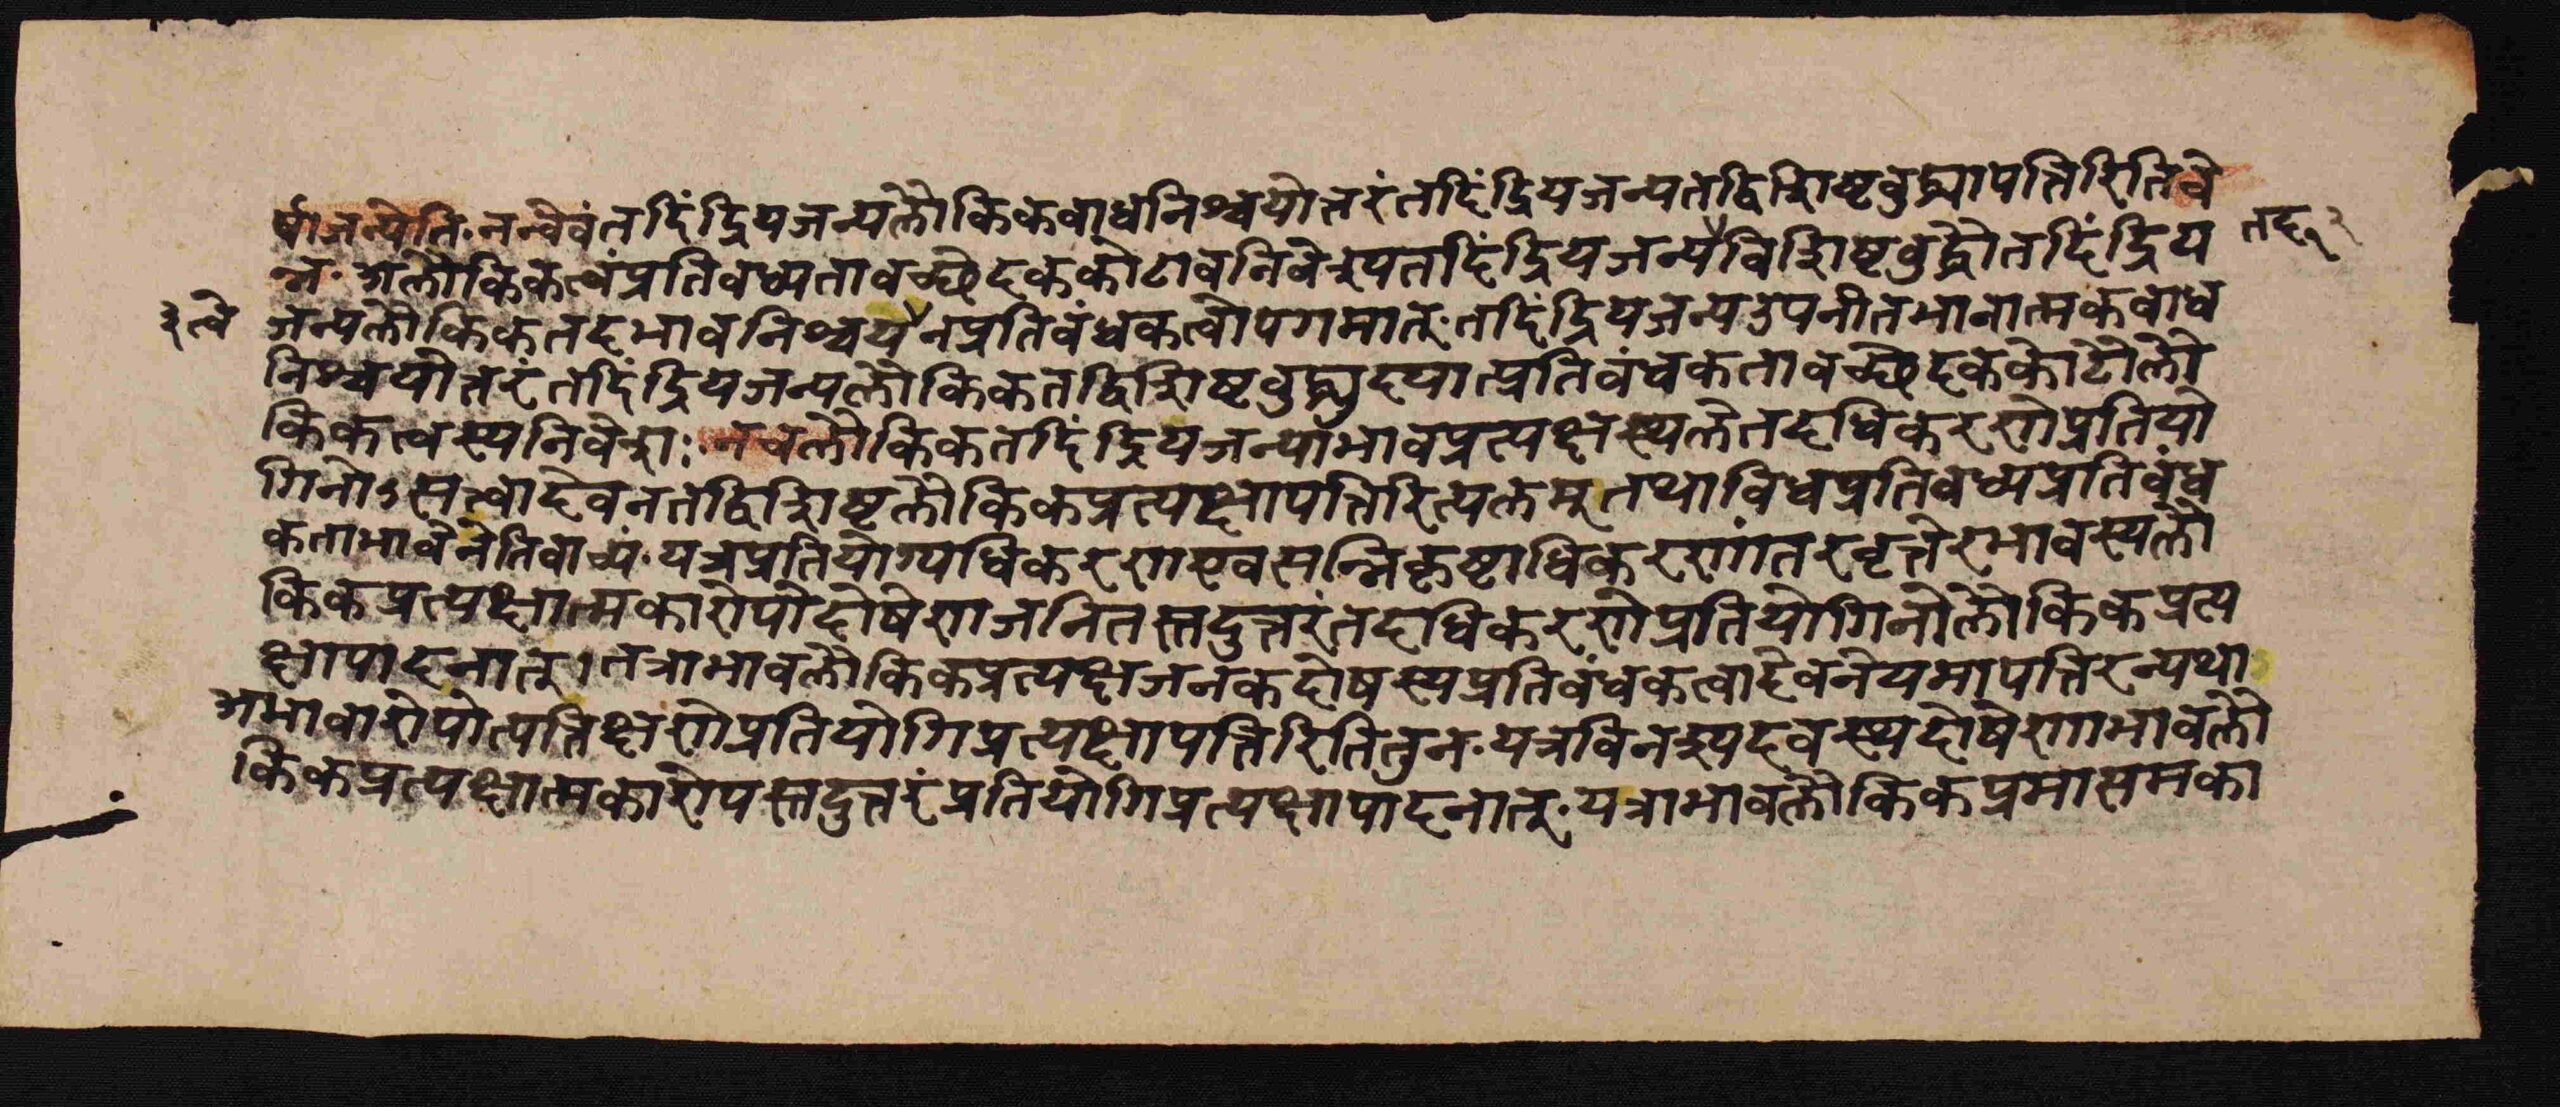 र्षाजन्येति॰नन्वेवंतदिंद्रियजन्यलौकिकबाधनिश्चयोत्तरंतदिंद्रियजन्यतद्विशिष्टबुद्ध्यापत्तिरितिचे
न्न॰अलौकिकत्वंप्रतिबध्यतावच्छेदककोटावनिवेश्यतदिंद्रियजन्यविशिष्टबुद्धौतदिंद्रिय
तद्व२
३त्वे
जन्यलौकिकतदभावनिश्चयनप्रतिबंधकत्वोपगमात्॰तदिंद्रियजन्यउपनीतभानात्मकबाध
निश्चयोत्तरंतदिंद्रियजन्यलौकिकतद्विशिष्टबुद्ध्युदयात्प्रतिबंधकतावच्छेदककोटौलौ
किकत्वस्यनिवेशः॰नचलौकिकतदिंद्रियजन्याभावप्रत्यक्षस्थलेतदधिकरणेप्रतियो
गिनोऽसत्वादेवनतद्विशिष्टलौकिकप्रत्यक्षापत्तिरित्यलम्तथाविधप्रतिबध्यप्रतिबंध
कताभावेनेतिवाच्यं॰यत्रप्रतियोग्यधिकरणएवसन्निकृष्टाधिकरणांतरवृत्तेरभावस्यलौ
किकप्रत्यक्षात्मकारोपोदोषेणजनितस्तदुत्तरंतदधिकरणेप्रतियोगिनोलौकिकप्रत्य
क्षापादनात्।तत्राभावलौकिकप्रत्यक्षजनकदोषस्यप्रतिबंधकत्वादेवनेयमापत्तिरन्यथा
अभावारोपोत्पत्तिक्षणेप्रतियोगिप्रत्यक्षापत्तिरितितुन॰यत्रविनश्यदवस्थदोषेणाभावलौ
किकप्रत्यक्षात्मकारोपस्तदुत्तरंप्रतियोगिप्रत्यक्षापादनात्॰यत्राभावलौकिकप्रमासमका